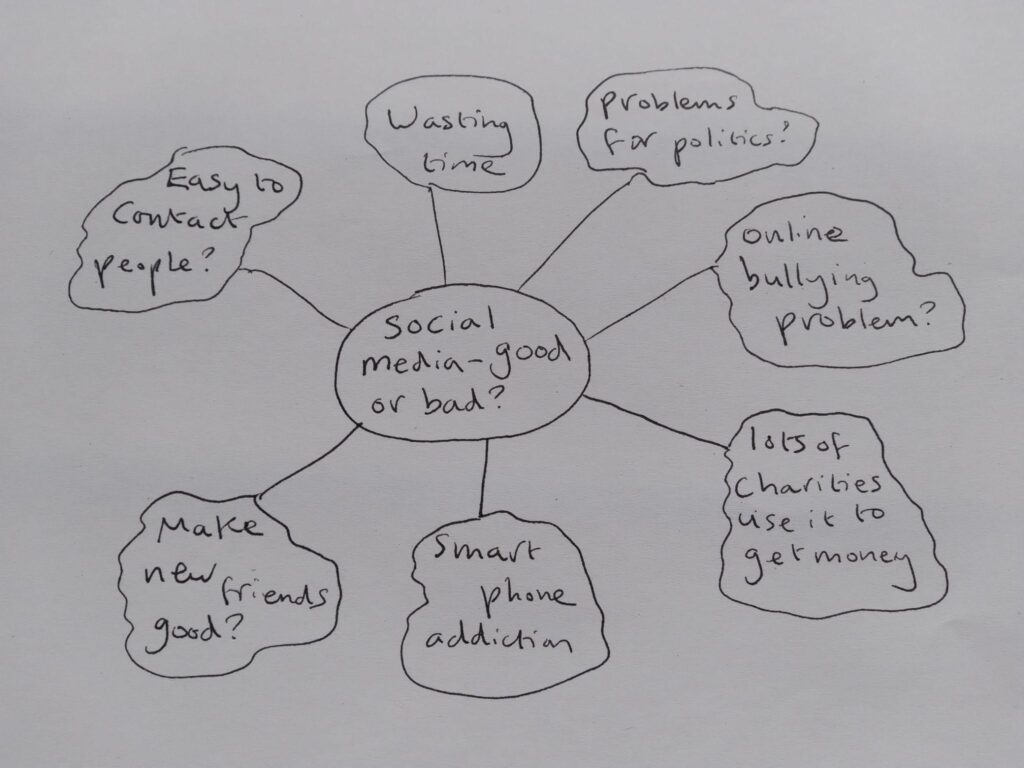 Wasting
time
problems
for politics?
Easy to
contact
people?
online
bullying
problem?
social
media-good
or bad?
lots of
charities
use it to
get money
Make
new friends
good?
smart
phone
addiction